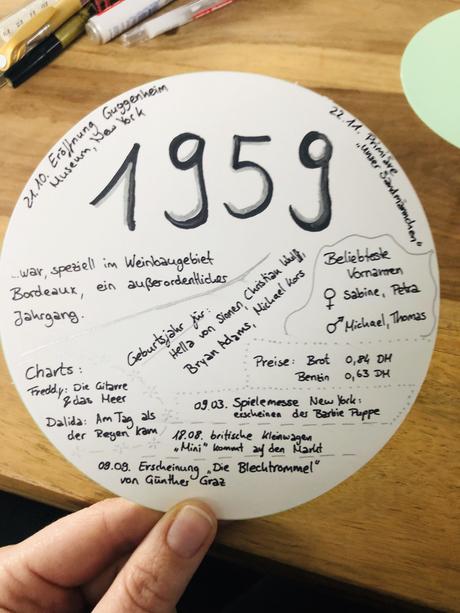 21.10. Eröffnung Guggenheim
Museum, New York
22.11. Primiäre
„Unser Sandmännchen"
1959
...war, speziell im Weinbaugebiet
Bordeaux, ein außerordentliches
Jahrgang.
Geburtsjahr für:
Hella von Sinnen, Christian Wulff,
Bryan Adams, Michael Kors
Beliebteste
Vornamen
♀ Sabine, Petra
♂ Michael, Thomas
Preise: Brot 0,84 DM
Benzin 0,63 DM
Charts:
Freddy: Die Gitarre
& das Meer
Dalida: Am Tag als
der Regen kam
09.03. Spielemesse New York:
erscheinen des Barbie Puppe
18.08. britische Kleinwagen
„Mini" kommt auf den Markt
09.09. Erscheinung „Die Blechtrommel"
von Günther Graz